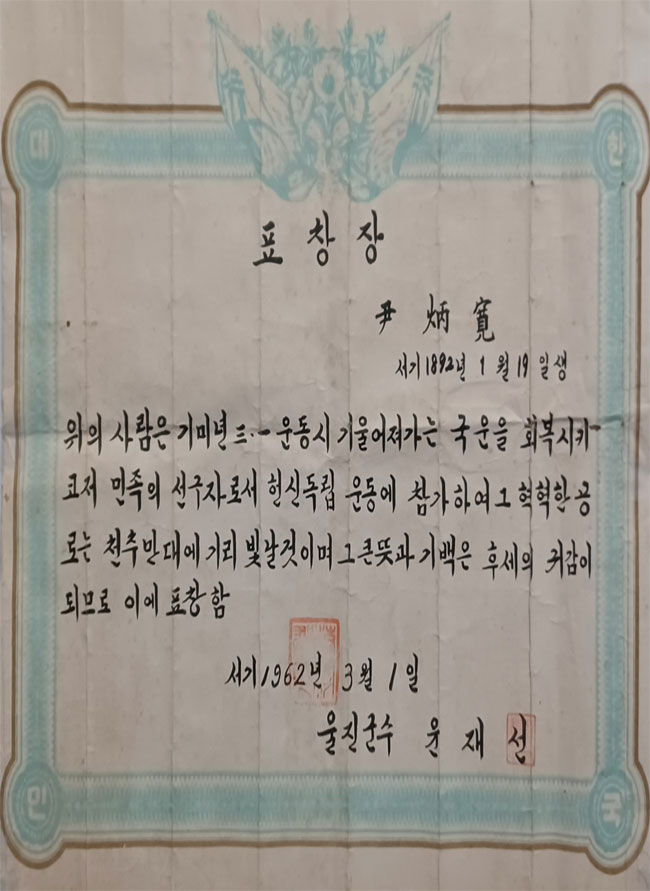 대 한
표 창 장
尹 炳 寬
서기 1892년 1월 19일생
위의 사람은 기미년 三·一 운동시 기울어져가는 국운을 회복시키
코저 민족의 선구자로서 헌신독립 운동에 참가하여 그 혁혁한 공
로는 천추만대에 기리 빛날것이며 그큰뜻과 기백은 후세의 귀감이
되므로 이에 표창함
서기 1962년 3월 1일
울진군수 윤 재 선
민 국